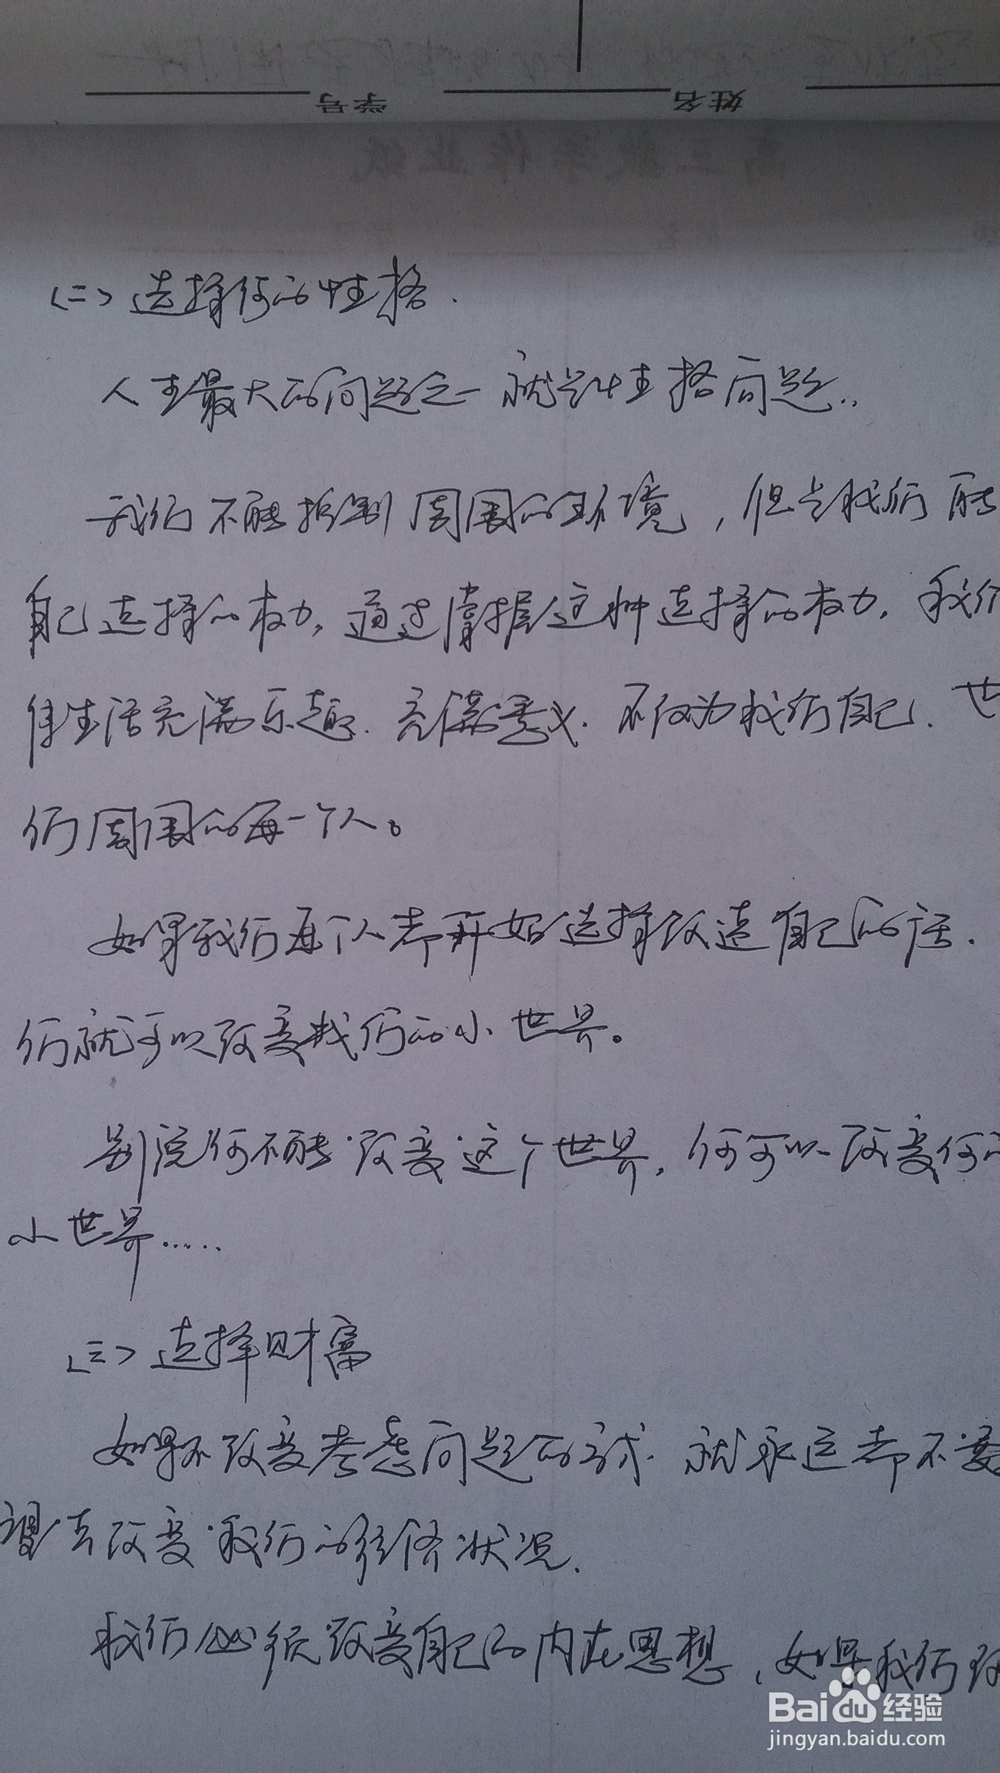 学号 姓名
高三数学作业纸
(二) 选择你的性格.
人生最大的问题之一就是性格问题..
我们不能控制周围的环境,但是我们能
自己选择的权力,通过掌握这种选择的权力,我们
使生活充满乐趣.充满意义.不仅为我们自己.也
们周围的每一个人。
如果我们每个人都开始选择改造自己的话.
们就可以改变我们的小世界。
别说你不能改变这个世界,你可以改变你的
小世界.....
(三) 选择财富
如果不改变考虑问题的方式.就永远都不要
望去改变我们的经济状况.
我们必须改变自己的内在思想,如果我们改
Baidu经验
jingyan.baidu.com